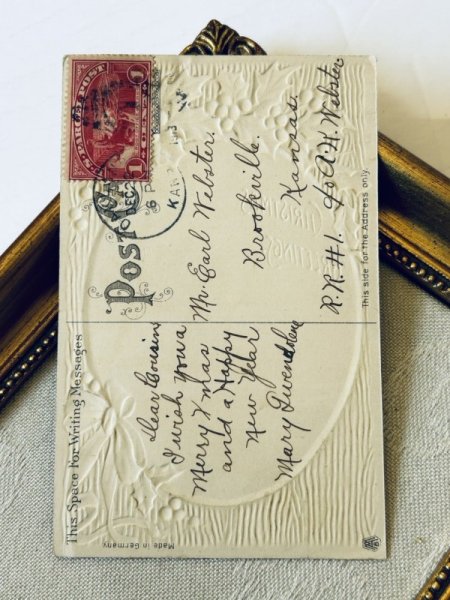 This Space For Writing Messages
POST
U.S. PARCEL POST
1 CENT 1
DEC
6 P
KAN
Dear Cousin
I wish you a
Merry Xmas
and a Happy
New Year
Mary Gwendolene
Mr. Earl Webster,
Brookville.
Kansas.
R.R. #1. c/o A.H. Webster
This side for the Address only.
Made in Germany